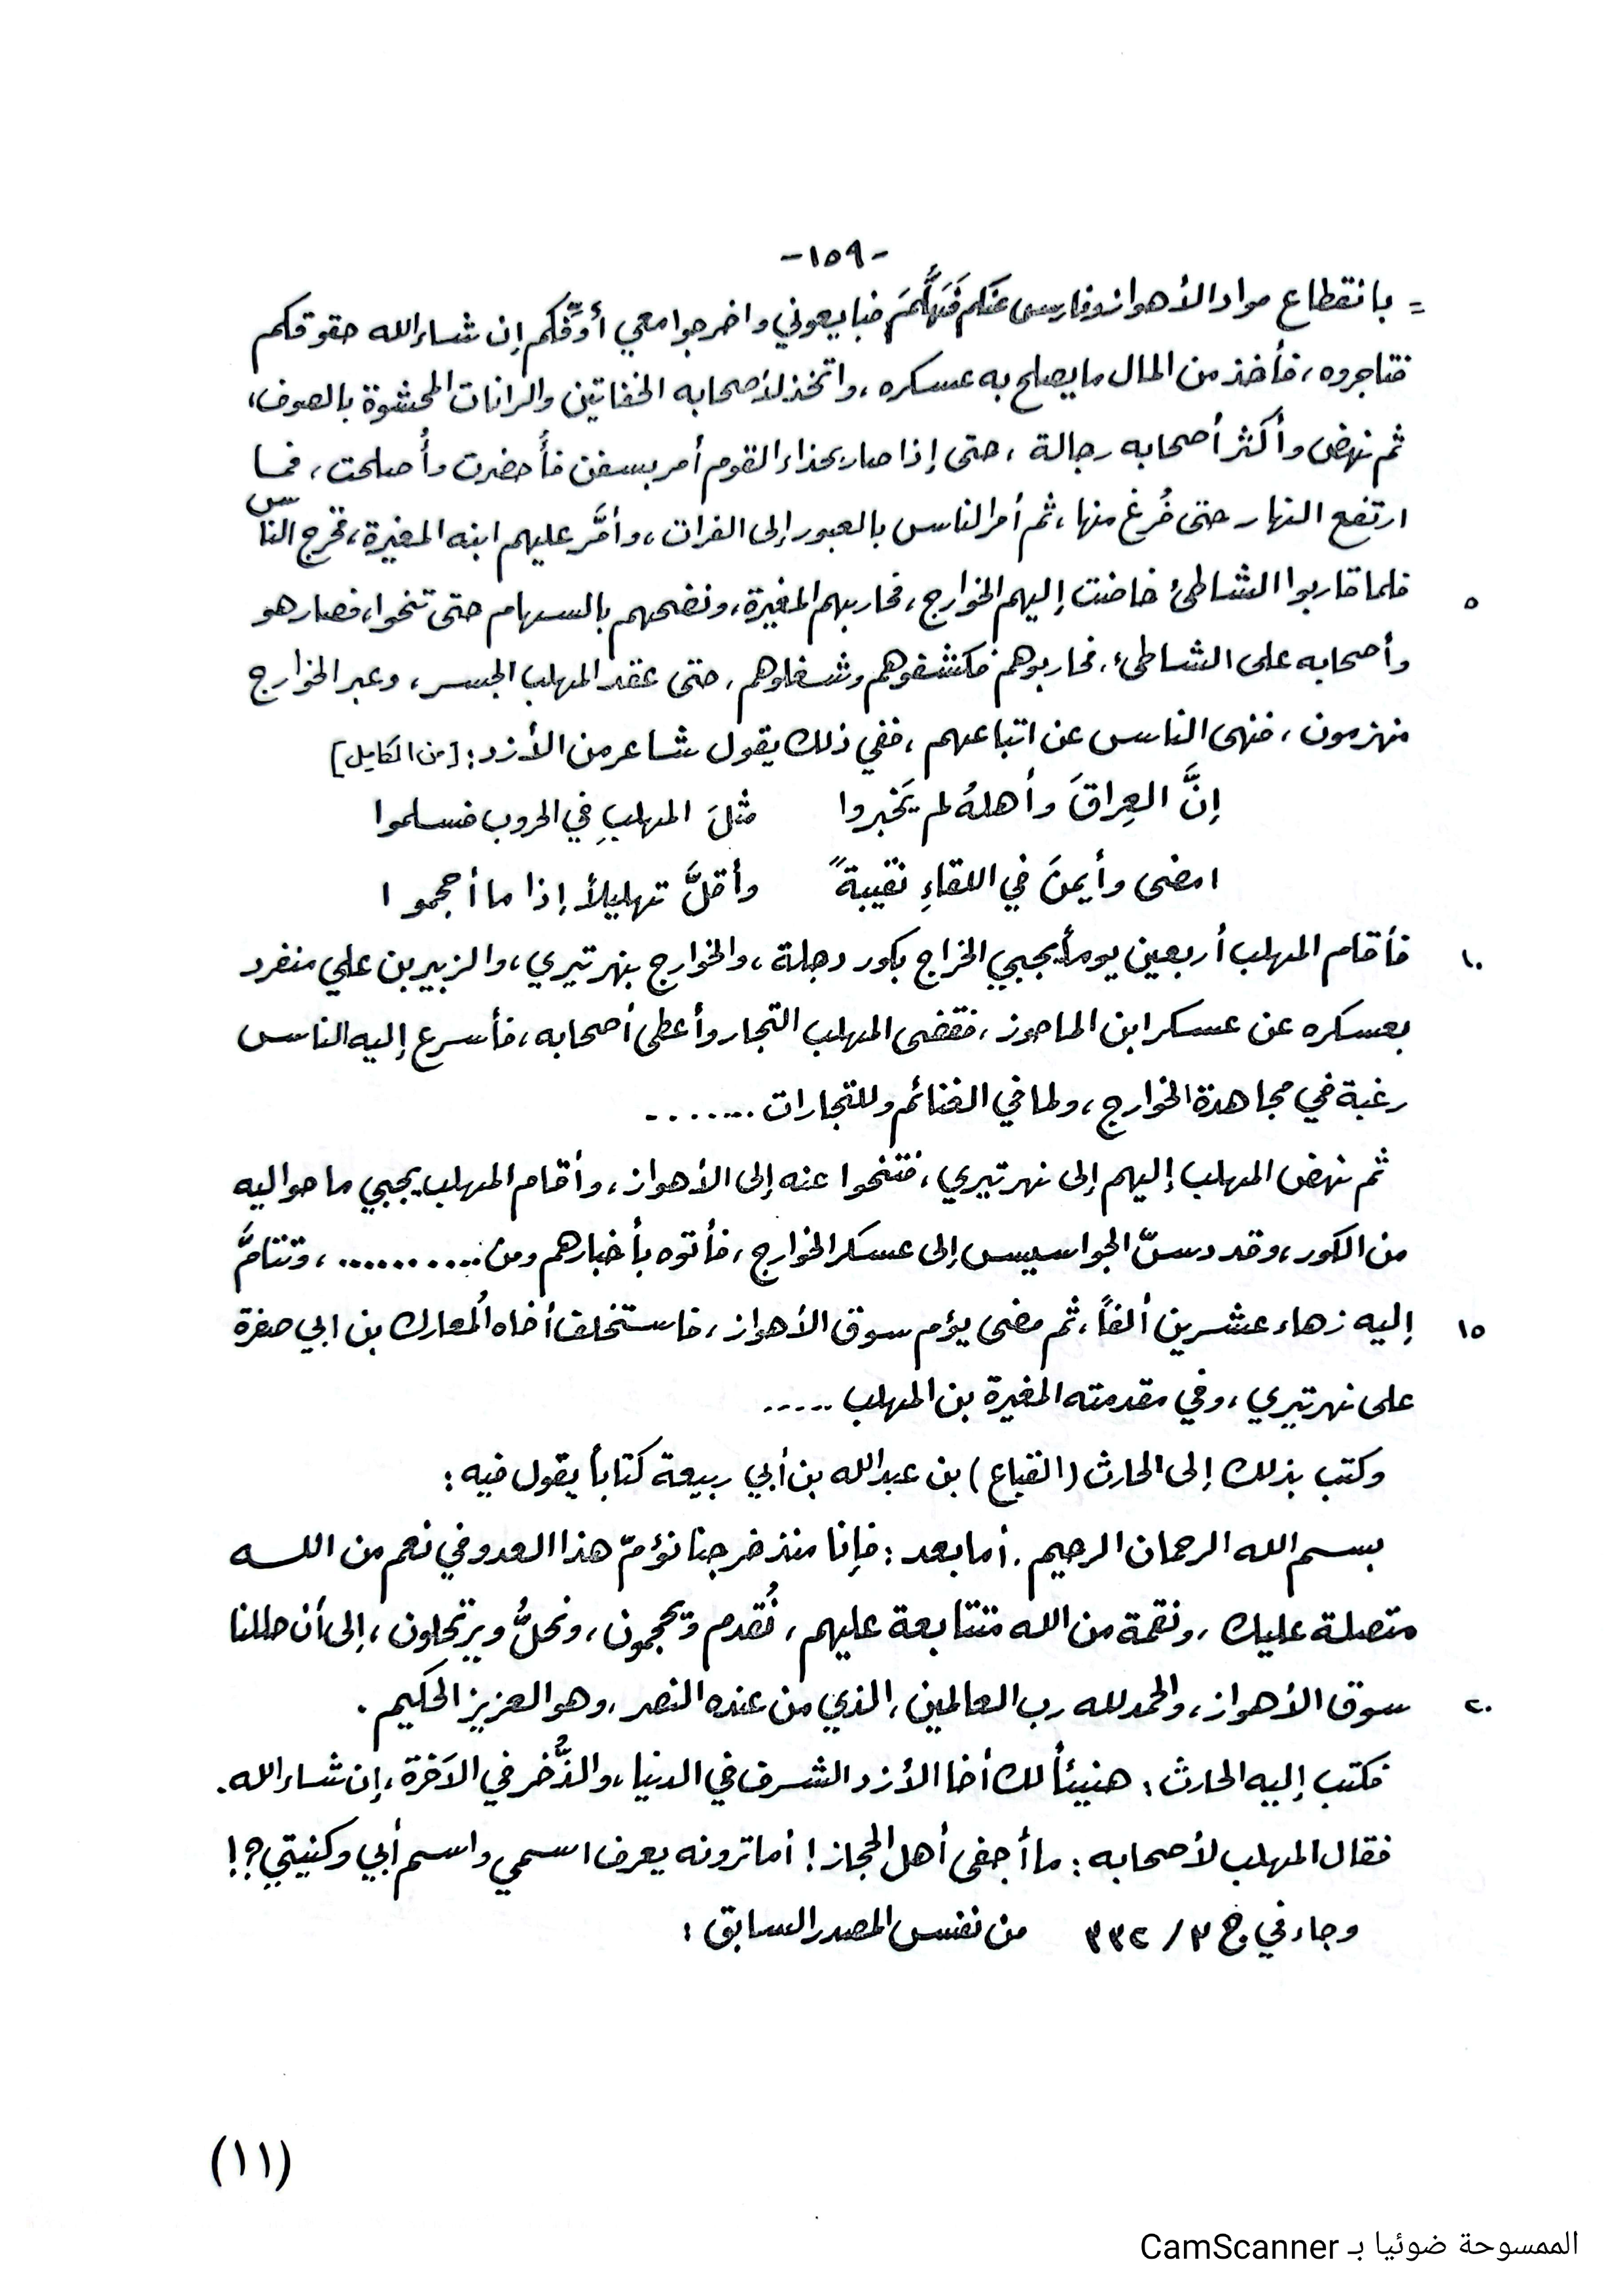 -١٥٩-
= بانقطاع مواد الأهواز وفارس عنكم فَهَلُمَّ فبايعوني واخرجوا معي أُوَفِّكم إن شاء الله حقوقكم
فتاجروه، فأخذ من المال ما يصلح به عسكره، واتخذ لأصحابه الخفاتين والرانات المحشوة بالصوف،
ثم نهض وأكثر أصحابه رجالة، حتى إذا صار بحذاء القوم أمر بسفن فأُحضرت وأُصلحت، فما
ارتفع النهار حتى فُرغ منها، ثم أمر الناس بالعبور إلى الفرات، وأمَّر عليهم ابنه المغيرة، فخرج الناس
٥ فلما قاربوا الشاطئ خاضت إليهم الخوارج، فحاربهم المغيرة، ونضحهم بالسهام حتى تنحوا، فصار هو
وأصحابه على الشاطئ، فحاربوهم فكشفوهم وشغلوهم، حتى عقد المهلب الجسر، وعبر الخوارج
منهزمون، فنهى الناس عن اتباعهم، ففي ذلك يقول شاعر من الأزد: [من الكامل]
إنَّ العِراقَ وأهلهُ لم يَخبروا مثلَ المهلبِ في الحروب فسلموا
امضى وأيمنَ في اللقاءِ نقيبةً وأقلَّ تهليلاً إذا ما أحجموا
١٠ فأقام المهلب أربعين يوماً يجبي الخراج بكور دجلة، والخوارج بنهر تيري، والزبير بن علي منفرد
بعسكره عن عسكر ابن الماحوز، فقضى المهلب التجار وأعطى أصحابه، فأسرع إليه الناس
رغبة في مجاهدة الخوارج، ولما في الغنائم وللتجارات .......
ثم نهض المهلب إليهم إلى نهر تيري، فتنحوا عنه إلى الأهواز، وأقام المهلب يجبي ما حواليه
من الكور، وقد دسّ الجواسيس إلى عسكر الخوارج، فأتوه بأخبارهم ومن ...........، وتتامَّ
١٥ إليه زهاء عشرين ألفاً، ثم مضى يؤم سوق الأهواز، فاستخلف أخاه المُعارك بن ابي صفرة
على نهر تيري، وفي مقدمته المغيرة بن المهلب .....
وكتب بذلك إلى الحارث (القباع) بن عبدالله بن أبي ربيعة كتاباً يقول فيه:
بسم الله الرحمان الرحيم. أما بعد: فإنا منذ خرجنا نؤمّ هذا العدو في نعم من اللـه
متصلة عليك، ونقمة من الله متتابعة عليهم، نُقدم ويحجمون، ونحلُّ ويرتحلون، إلى أن حللنا
٢٠ سوق الأهواز، والحمد لله رب العالمين، الذي من عنده النصر، وهو العزيز الحكيم.
فكتب إليه الحارث: هنيئاً لك أخا الأزد الشرف في الدنيا، والذُّخر في الآخرة، إن شاء الله.
فقال المهلب لأصحابه: ما أجفى أهل الحجاز! أما ترونه يعرف اسمي واسم أبي وكنيتي؟!
وجاء في ج ٣/ ٣٣٢ من نفس المصدر السابق:
(١١)
الممسوحة ضوئيا بـ CamScanner